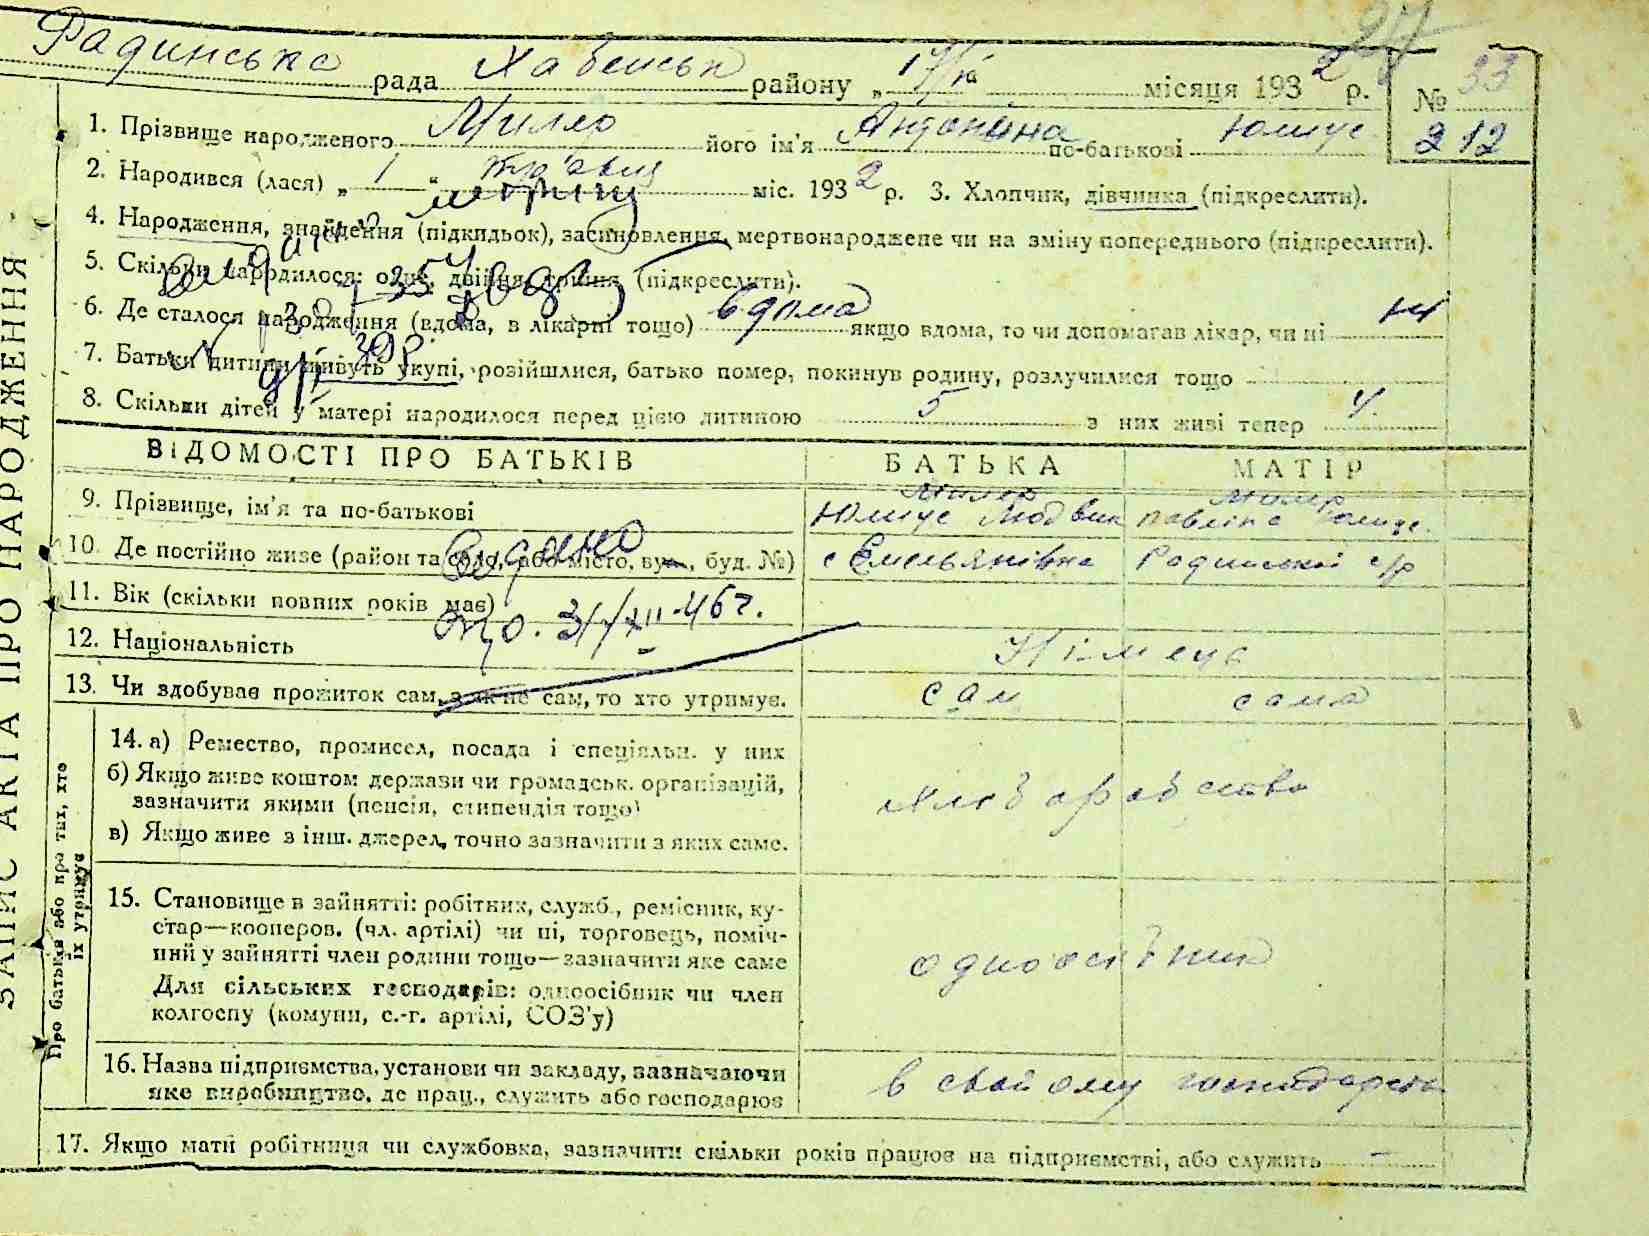 27
Радинська рада Хабенськ району „ 193 2 р. № 33
212
1. Прізвище народженого Милер його ім'я Антоніна по-батькові Юлиус
2. Народився (лася) „ 1 “ міс. 193 2 р. 3. Хлопчик, дівчинка (підкреслити).
4. Народження, знайдення (підкидьок), засиновлення, мертвонароджене чи на зміну попереднього (підкреслити).
5. Скільки народилося: одне, двійня, трійня (підкреслити).
6. Де сталося народження (вдома, в лікарні тощо) вдома якщо вдома, то чи допомагав лікар, чи ні ні
7. Батьки дитини живуть укупі, розійшлися, батько помер, покинув родину, розлучилися тощо
8. Скільки дітей у матері народилося перед цією дитиною 5 з них живі тепер 4.
ВІДОМОСТІ ПРО БАТЬКІВ БАТЬКА МАТІР
9. Прізвище, ім'я та по-батькові Милер Юлиус Людвик Милер Павліна Юлиус.
10. Де постійно живе (район та село, або місто, вул., буд. №) с Емельянівка Радинської с/р
11. Вік (скільки повних років має)
12. Національність Німець
13. Чи здобуває прожиток сам, а як не сам, то хто утримує. сам сама
14. а) Ремество, промисел, посада і спеціяльн. у них
б) Якщо живе коштом держави чи громадськ. організацій,
зазначити якими (пенсія, стипендія тощо) хлібаробство
в) Якщо живе з інш. джерел, точно зазначити з яких саме.
15. Становище в зайнятті: робітник, служб., ремісник, ку-
стар—кооперов. (чл. артілі) чи ні, торговець, поміч-
ний у зайнятті член родини тощо—зазначити яке саме одноосібник
Для сільських господарів: одноосібник чи член
колгоспу (комуни, с.-г. артілі, СОЗ'у)
16. Назва підприємства, установи чи закладу, зазначаючи в свойому
яке виробництво, де прац., служить або господарює
17. Якщо мати робітниця чи службовка, зазначити скільки років працює на підприємстві, або служить –
Видано
31/XII-46 г.
ЗАПИС АКТА ПРО НАРОДЖЕННЯ
Про батьків або про тих, хто
їх утримує